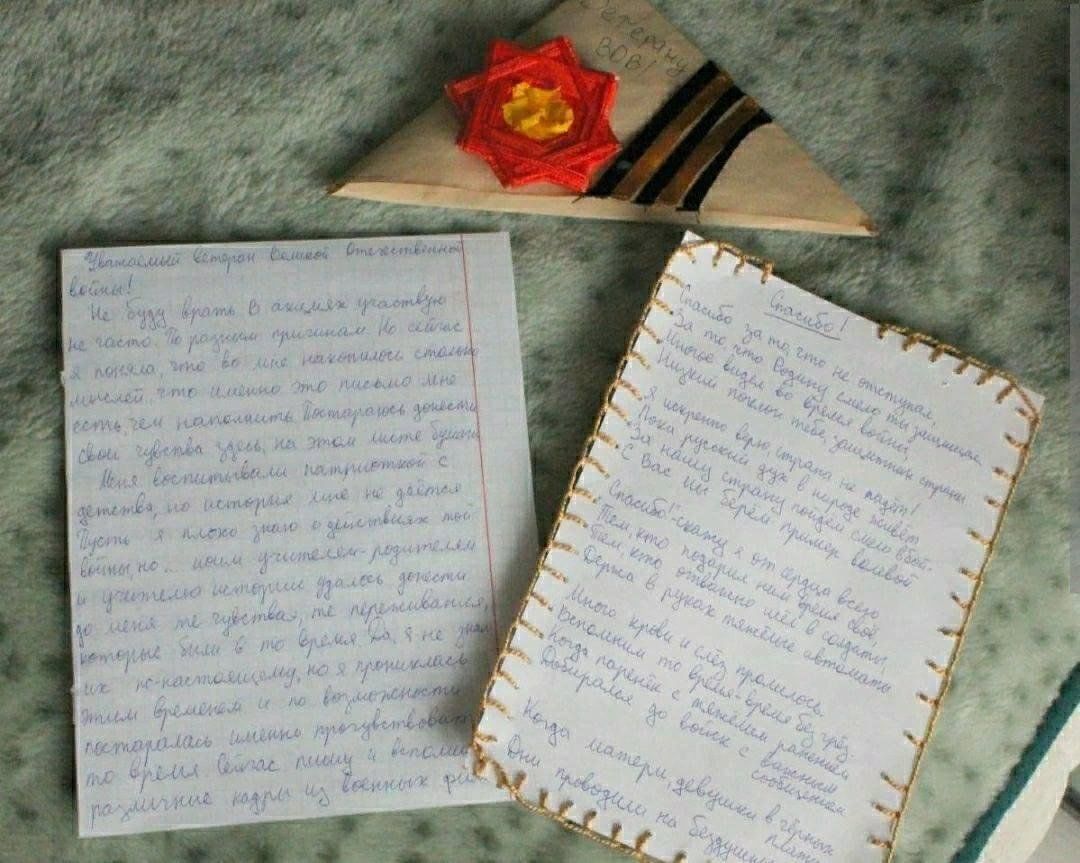 Ветерану
ВОВ!
Уважаемый ветеран Великой Отечественной
войны!
Не буду врать. В акциях участвую
не часто. По разным причинам. Но сейчас
я поняла, что во мне накопилось столько
мыслей, что именно это письмо мне
есть, чем наполнить. Постараюсь донести
свои чувства здесь, на этом листе бумаги
Меня воспитывали патриоткой с
детства, но история мне не даётся
Пусть я плохо знаю о действиях той
войны, но ... моим учителем-родителям
и учителю истории удалось донести
до меня те чувства, те переживания,
которые были в то время. Да, я не знаю
их по-настоящему, но я прониклась
этим временем и по возможности
постаралась именно прочувствовать
то время. Сейчас пишу и вспоминаю
различные кадры из военных
Спасибо!
Спасибо за то, что не отступал,
За то что Родину смело ты защищал,
Многое видел во время войны,
Низкий поклон тебе, защитник страны
Я искренно верю, страна не падёт!
Пока русский дух в народе живёт
За нашу страну пойдём смело в бой-
С Вас мы берём пример волевой
Спасибо!-скажу я от сердца всего
Тем, кто подарил нам время своё,
Тем, кто отважно шёл в солдаты,
Держа в руках тяжёлые автоматы
Много крови и слёз пролилось
Вспомним то время-время без грёз
Когда паренёк с тяжёлым ранением
Добирался до войск с важным
сообщением
Когда матери, девушки в чёрных
Дни проводили на